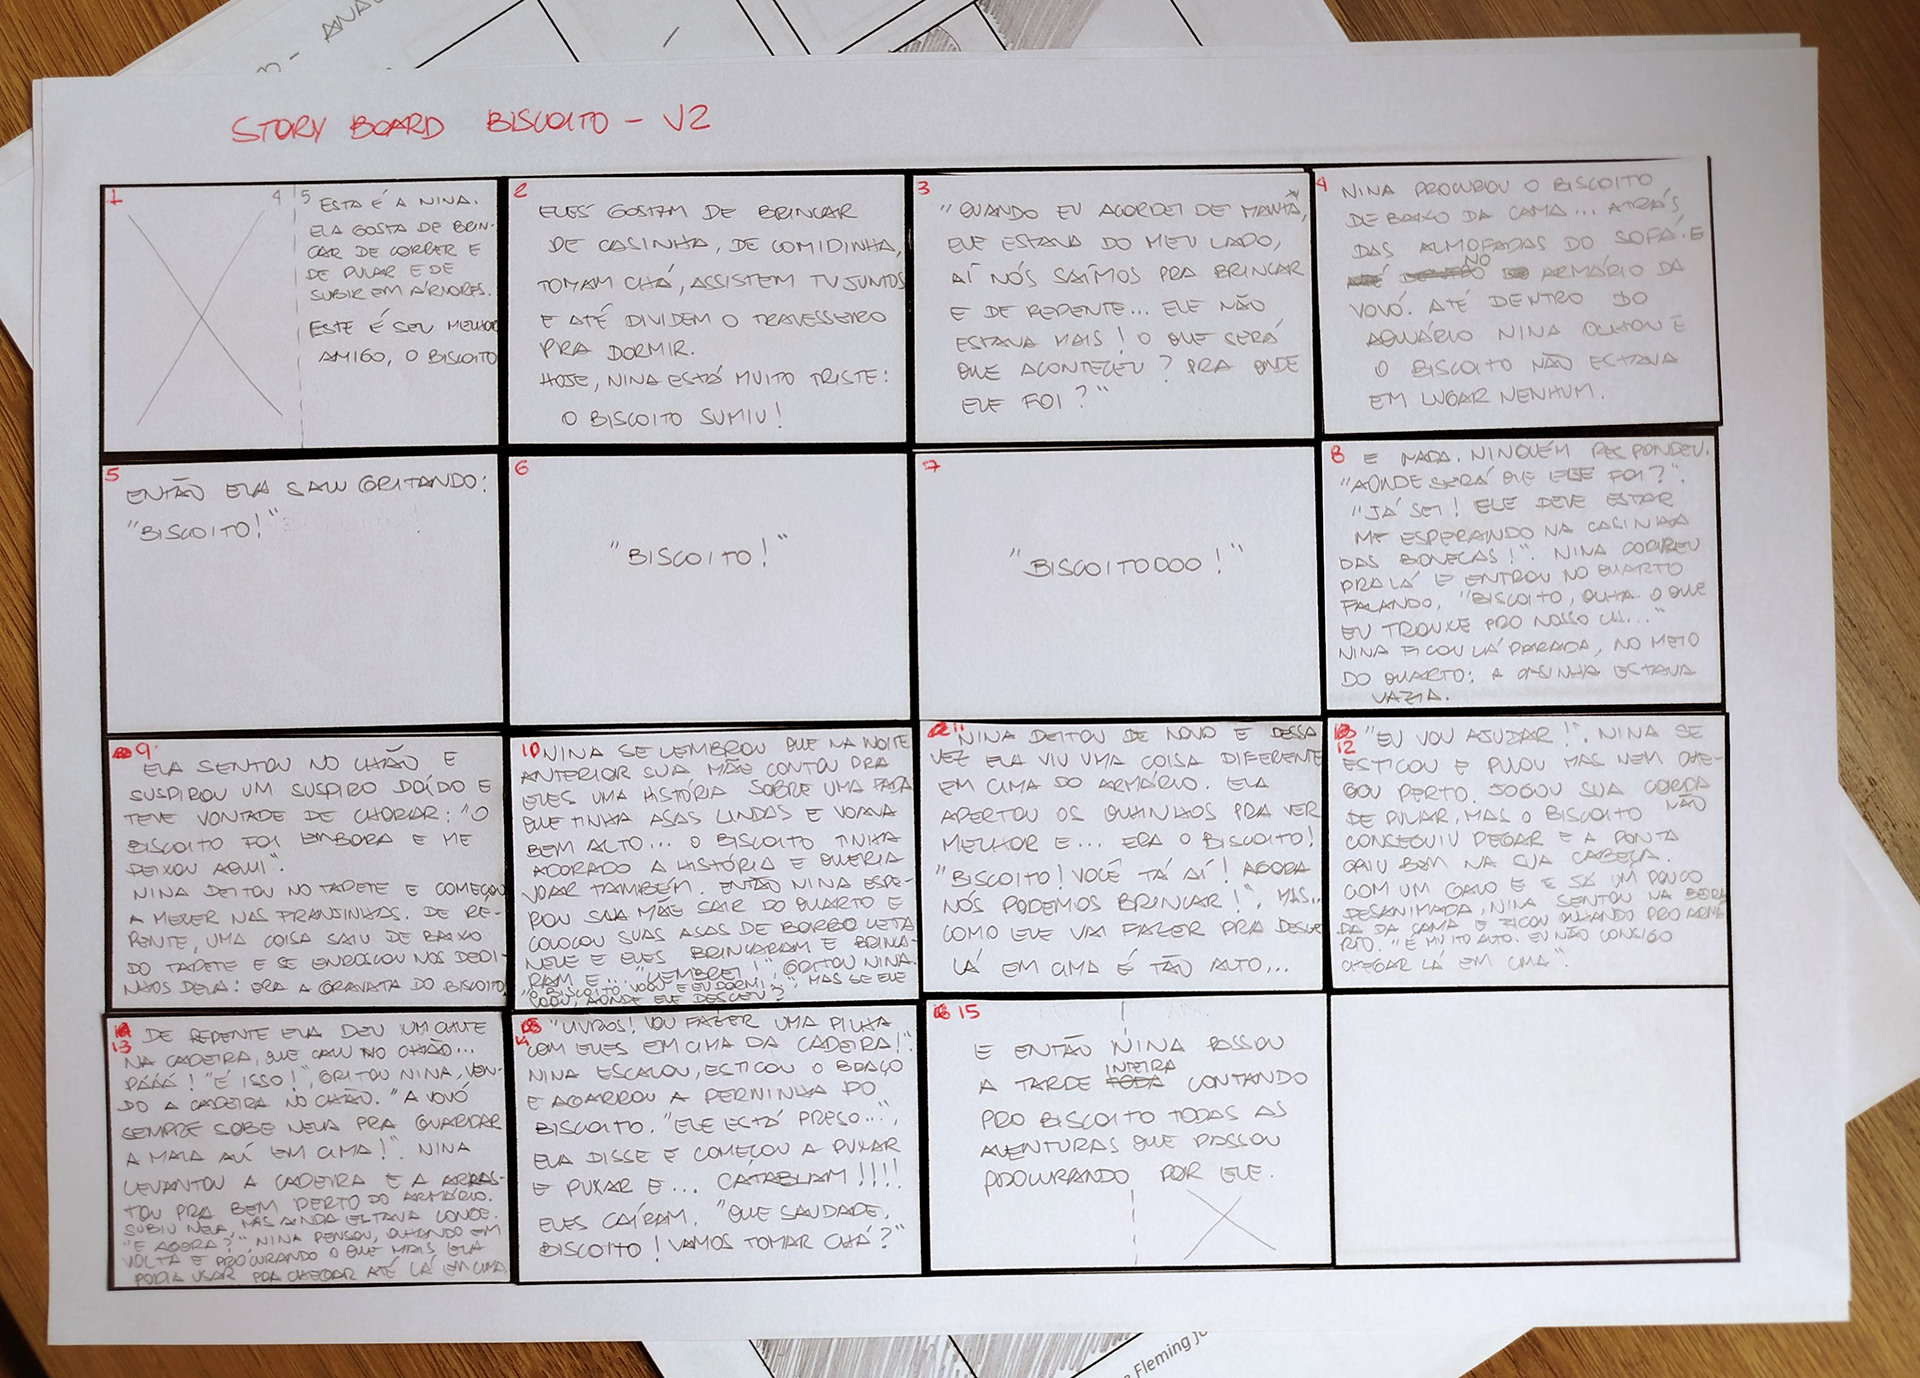 STORY BOARD BISCOITO - V2
1
4
5
ESTA É A NINA.
ELA GOSTA DE BRIN-
CAR DE CORRER E
DE PULAR E DE
SUBIR EM ÁRVORES.
ESTE É SEU MELHOR
AMIGO, O BISCOITO
2
ELES GOSTAM DE BRINCAR
DE CASINHA, DE COMIDINHA,
TOMAM CHÁ, ASSISTEM TV JUNTOS
E ATÉ DIVIDEM O TRAVESSEIRO
PRA DORMIR.
HOJE, NINA ESTÁ MUITO TRISTE:
O BISCOITO SUMIU!
3
"QUANDO EU ACORDEI DE MANHÃ,
ELE ESTAVA DO MEU LADO,
AÍ NÓS SAÍMOS PRA BRINCAR
E DE REPENTE... ELE NÃO
ESTAVA MAIS! O QUE SERÁ
QUE ACONTECEU? PRA ONDE
ELE FOI?"
4
NINA PROCUROU O BISCOITO
DE BAIXO DA CAMA... ATRÁS
DAS ALMOFADAS DO SOFÁ. E
NO ARMÁRIO DA
VOVÓ. ATÉ DENTRO DO
AQUÁRIO NINA OLHOU E
O BISCOITO NÃO ESTAVA
EM LUGAR NENHUM.
5
ENTÃO ELA SAIU GRITANDO:
"BISCOITO!"
6
"BISCOITO!"
7
"BISCOITOOOO!"
8
E NADA. NINGUÉM RESPONDEU.
"AONDE SERÁ QUE ELE FOI?".
"JÁ SEI! ELE DEVE ESTAR
ME ESPERANDO NA CASINHA
DAS BONECAS!". NINA CORREU
PRA LÁ E ENTROU NO QUARTO
FALANDO, "BISCOITO, OLHA O QUE
EU TROUXE PRO NOSSO CH..."
NINA FICOU LÁ PARADA, NO MEIO
DO QUARTO: A CASINHA ESTAVA
VAZIA.
9
ELA SENTOU NO CHÃO E
SUSPIROU UM SUSPIRO DOÍDO E
TEVE VONTADE DE CHORAR: "O
BISCOITO FOI EMBORA E ME
DEIXOU AQUI".
NINA DEITOU NO TAPETE E COMEÇOU
A MEXER NAS FRANJINHAS. DE RE-
PENTE, UMA COISA SAIU DE BAIXO
DO TAPETE E SE ENROSCOU NOS DEDI-
NHOS DELA: ERA A GRAVATA DO BISCOITO
10
NINA SE LEMBROU QUE NA NOITE
ANTERIOR SUA MÃE CONTOU PRA
ELES UMA HISTÓRIA SOBRE UMA FADA
QUE TINHA ASAS LINDAS E VOAVA
BEM ALTO... O BISCOITO TINHA
ADORADO A HISTÓRIA E QUERIA
VOAR TAMBÉM. ENTÃO NINA ESPE-
ROU SUA MÃE SAIR DO QUARTO E
COLOCOU SUAS ASAS DE BORBOLETA
NELE E ELES BRINCARAM E BRINCA-
RAM E... "LEMBREI!" GRITOU NINA.
"O BISCOITO VOOU E EU DORMI... MAS SE ELE
VOOU, AONDE ELE DESCEU?"
11
NINA DEITOU DE NOVO E DESSA
VEZ ELA VIU UMA COISA DIFERENTE
EM CIMA DO ARMÁRIO. ELA
APERTOU OS OLHINHOS PRA VER
MELHOR E... ERA O BISCOITO!
"BISCOITO! VOCÊ TÁ AÍ! AGORA
NÓS PODEMOS BRINCAR!", MAS...
COMO ELE VAI FAZER PRA DESCER
LÁ EM CIMA É TÃO ALTO...
12
"EU VOU AJUDAR!". NINA SE
ESTICOU E PULOU MAS NEM CHE-
GOU PERTO. JOGOU SUA CORDA
DE PULAR, MAS O BISCOITO NÃO
CONSEGUIU PEGAR E A PONTA
CAIU BEM NA SUA CABEÇA.
COM UM GALO E E SÓ UM POUCO
DESANIMADA, NINA SENTOU NA BEIRA
DA DA CAMA E FICOU OLHANDO PRO ARMÁ-
RIO. "É MUITO ALTO. EU NÃO CONSIGO
CHEGAR LÁ EM CIMA".
13
DE REPENTE ELA DEU UM CHUTE
NA CADEIRA, QUE CAIU NO CHÃO...
PÁÁÁ! "É ISSO!", GRITOU NINA, VEN-
DO A CADEIRA NO CHÃO. "A VOVÓ
SEMPRE SOBE NELA PRA GUARDAR
A MALA ALI EM CIMA!". NINA
LEVANTOU A CADEIRA E A ARRAS-
TOU PRA BEM PERTO DO ARMÁRIO.
SUBIU NELA, MAS AINDA ESTAVA LONGE.
"E AGORA?" NINA PENSOU, OLHANDO EM
VOLTA E PROCURANDO O QUE MAIS ELA
PODIA USAR PRA CHEGAR ATÉ LÁ EM CIMA.
14
"LIVROS! VOU FAZER UMA PILHA
COM ELES EM CIMA DA CADEIRA!".
NINA ESCALOU, ESTICOU O BRAÇO
E AGARROU A PERNINHA DO
BISCOITO. "ELE ESTÁ PRESO...",
ELA DISSE E COMEÇOU A PUXAR
E PUXAR E... CATABLAM!!!!
ELES CAÍRAM. "QUE SAUDADE,
BISCOITO! VAMOS TOMAR CHÁ?"
15
E ENTÃO NINA PASSOU
A TARDE INTEIRA CONTANDO
PRO BISCOITO TODAS AS
AVENTURAS QUE PASSOU
PROCURANDO POR ELE.
Fleming